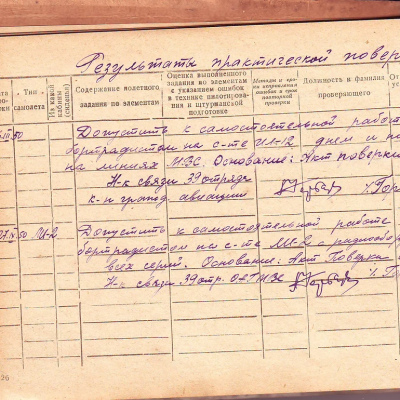 Результаты практической повер
Тип самолета
Из какой кабины (сиденья)
Содержание полетного задания по элементам
Оценка выполненного задания по элементам с указанием ошибок в технике пилотирования и штурманской подготовке
Методы и сроки исправления ошибок и срок повторной проверки
Должность и фамилия проверяющего
50 Допустить к самостоятельной работ
бортрадистом на с-те ИЛ-12 днем и
на линиях МВС. Основание: Акт поверки
Н-к связи 39 отряда
к-н гражд. авиации
50 Допустить к самостоятельной работе
бортрадистом на с-те
всех серий. Основание: Акт Поверки
Н-к связи 39 отр.
26